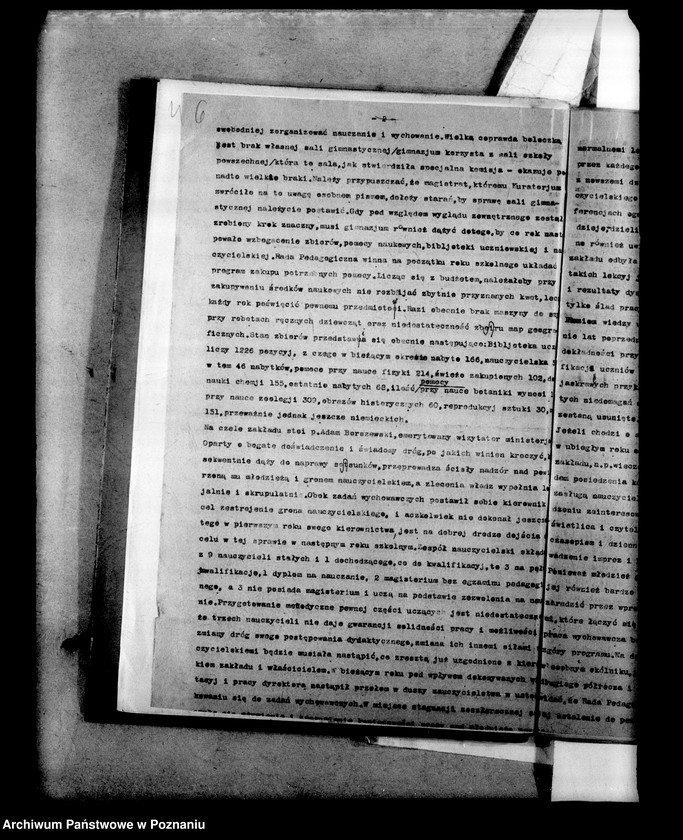 6
- 2 -
swobodniej zorganizować nauczanie i wychowanie. Wielką coprawda bolączką
jest brak własnej sali gimnastycznej/gimnazjum korzysta z sali szkoły
powszechnej/która to sala, jak stwierdziła specjalna komisja - okazuje po
nadto wielkie braki. Należy przypuszczać, że magistrat, któremu Kuratorjum
zwróciło na to uwagę osobnem pismem, dołoży starań, by sprawę sali gimna-
stycznej należycie postawić. Gdy pod względem wyglądu zewnętrznego został
zrobiony krok znaczny, musi gimnazjum również dążyć do tego, by co rok nast
powało wzbogacenie zbiorów, pomocy naukowych, bibljoteki uczniowskiej i na
czycielskiej. Rada Pedagogiczna winna na początku roku szkolnego układać
program zakupu potrzebnych pomocy. Licząc się z budżetem, należałoby przy
zakupywaniu środków naukowych nie rozbijać zbytnio przyznanych kwot, lecz
każdy rok poświęcić pewnemu przedmiotowi. Razi obecnie brak maszyny do sz
przy robotach ręcznych dziewcząt oraz niedostateczność zbioru map geogra
ficznych. Stan zbiorów przedstawia się obecnie następująco: Bibljoteka ucz
liczy 1226 pozycyj, z czego w bieżącym okresie nabyto 166, nauczycielska
w tem 46 nabytków, pomoce przy nauce fizyki 214, świeżo zakupionych 102, do
nauki chemji 155, ostatnio nabytych 68, ilość pomocy przy nauce botaniki wynosi
przy nauce zoologji 309, obrazów historycznych 60, reprodukcyj sztuki 30,
151, przeważnie jednak jeszcze niemieckich.
Na czele zakładu stoi p. Adam Borszewski, emerytowany wizytator ministerja
Oparty o bogate doświadczenie i świadomy dróg, po jakich winien kroczyć,
sekwentnie dąży do naprawy stosunków, przeprowadza ścisły nadzór nad pow
rzoną mu młodzieżą i gronem nauczycielskiem, a zlecenia władz wypełnia lo
jalnie i skrupulatnie. Obok zadań wychowawczych postawił sobie kierownik
cel zestrojenie grona nauczycielskiego, i aczkolwiek nie dokonał jeszcze
tego w pierwszym roku swego kierownictwa, jest na dobrej drodze dojścia
celu w tej sprawie w następnym roku szkolnym. Zespół nauczycielski skład
z 9 nauczycieli stałych i 1 dochodzącego, co do kwalifikacyj, to 3 ma peł
kwalifikacje, 1 dyplom na nauczanie, 2 magisterium bez egzaminu pedagogi
nego, a 3 nie posiada magisterium i uczą na podstawie zezwolenia na nau
nie. Przygotowanie metodyczne pewnej części uczących jest niedostateczne
że trzech nauczycieli nie daje gwarancji solidności pracy i możliwości
zmiany dróg swego postępowania dydaktycznego, zmiana ich innemi siłami
czycielskiemi będzie musiała nastąpić, co zresztą już uzgodnione z kiero
kiem zakładu i właścicielem. W bieżącym roku pod wpływem dokonywanych
tacyj i pracy dyrektora nastąpił przełom w duszy nauczycielstwa w usto
kowaniu się do zadań wychowawczych. W miejsce stagnacji zeszłorocznej
normalnemi le
przez każdego
czycielskiego
ferencjach og
dzieje, dzieli
ne również uw
zakładu odbyła
takich lekcyj
i rezultaty dy
tylko ślad prac
nie lat poprzed
dokładności przy
fikacją uczniów
jaskrawych przyk
tych niedomagań
zostaną usunięte
Jeżeli chodzi o
w ubiegłym roku
zakładu, n.p. wiecz
dem posiedzenia k
zasługą nauczyciel
dzeniu zainteresow
świetlica i czytel
czasopism i dzienn
wadzenie imprez i
Ponieważ młodzież
jej również bardzo
zaradzić przez wpro
mi, które łączyć się
praca wychowawcza b
góry programu. Na d
osobnym okólniku,
drugiego półrocza i
że Rada Pedago
ustalenie do pos
Archiwum Państwowe w Poznaniu